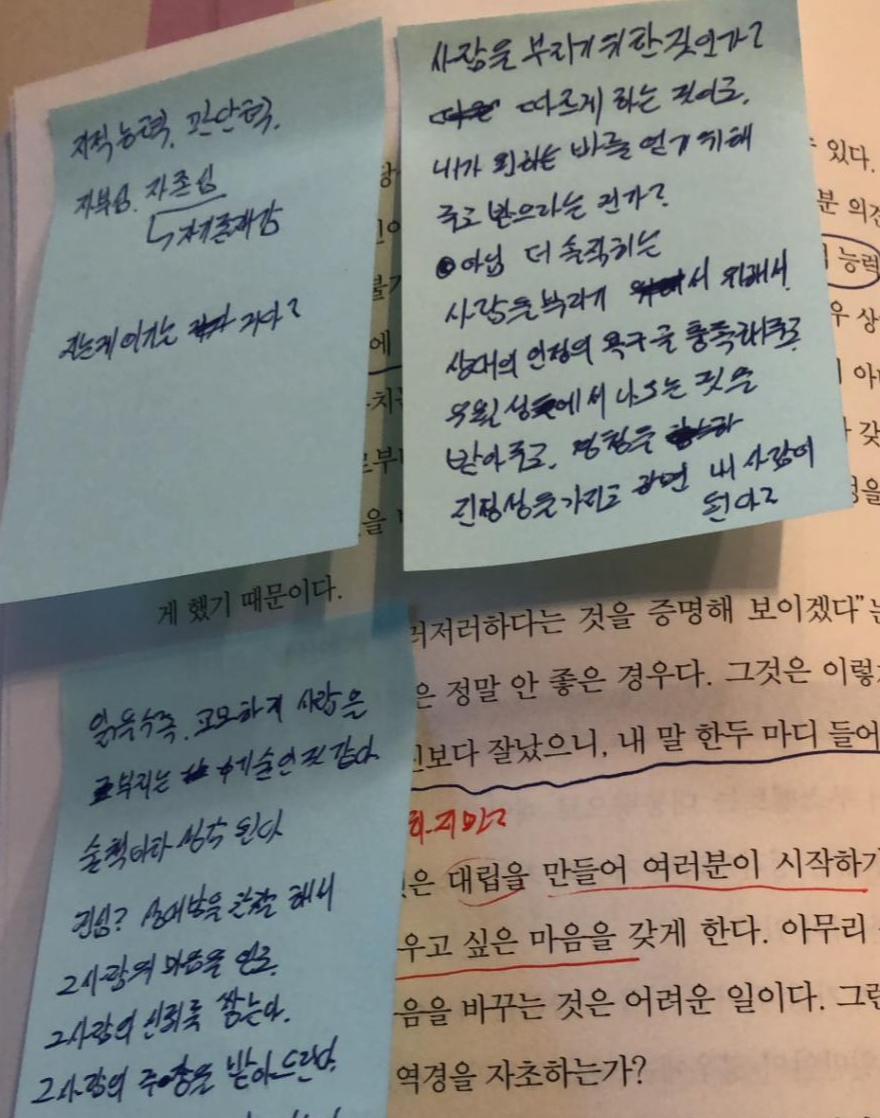 지적능력, 판단력,
자부심, 자존심
↳자기존재감
지는게 이기는 거다?
사람을 부리기 위한 것인가?
따르게 하는 것이고,
내가 원하는 바를 얻기 위해
주고 받으라는 건가?
아님 더 솔직히는
사람을 부리기 위해서
상대의 인정의 욕구를 충족해주고
우월성에서 나오는 것을
받아주고, 경청을
진정성을 가지고 하면 내 사람이
된다?
있다.
분 의견
능력
우 상
에
게 했기 때문이다.
러저러하다는 것을 증명해 보이겠다”는
은 정말 안 좋은 경우다. 그것은 이렇
신보다 잘났으니, 내 말 한두 마디 들어
하지만?
것은 대립을 만들어 여러분이 시작하기
우고 싶은 마음을 갖게 한다. 아무리
음을 바꾸는 것은 어려운 일이다. 그런
역경을 자초하는가?
읽을수록, 교묘하게 사람을
부리는 기술인것 같다
술책이라 생각 된다
진심? 상대방을 관찰 해서
그사람의 마음을 얻고,
그사람의 신뢰를 쌓는다.
그사람의 주장을 받아드린다.